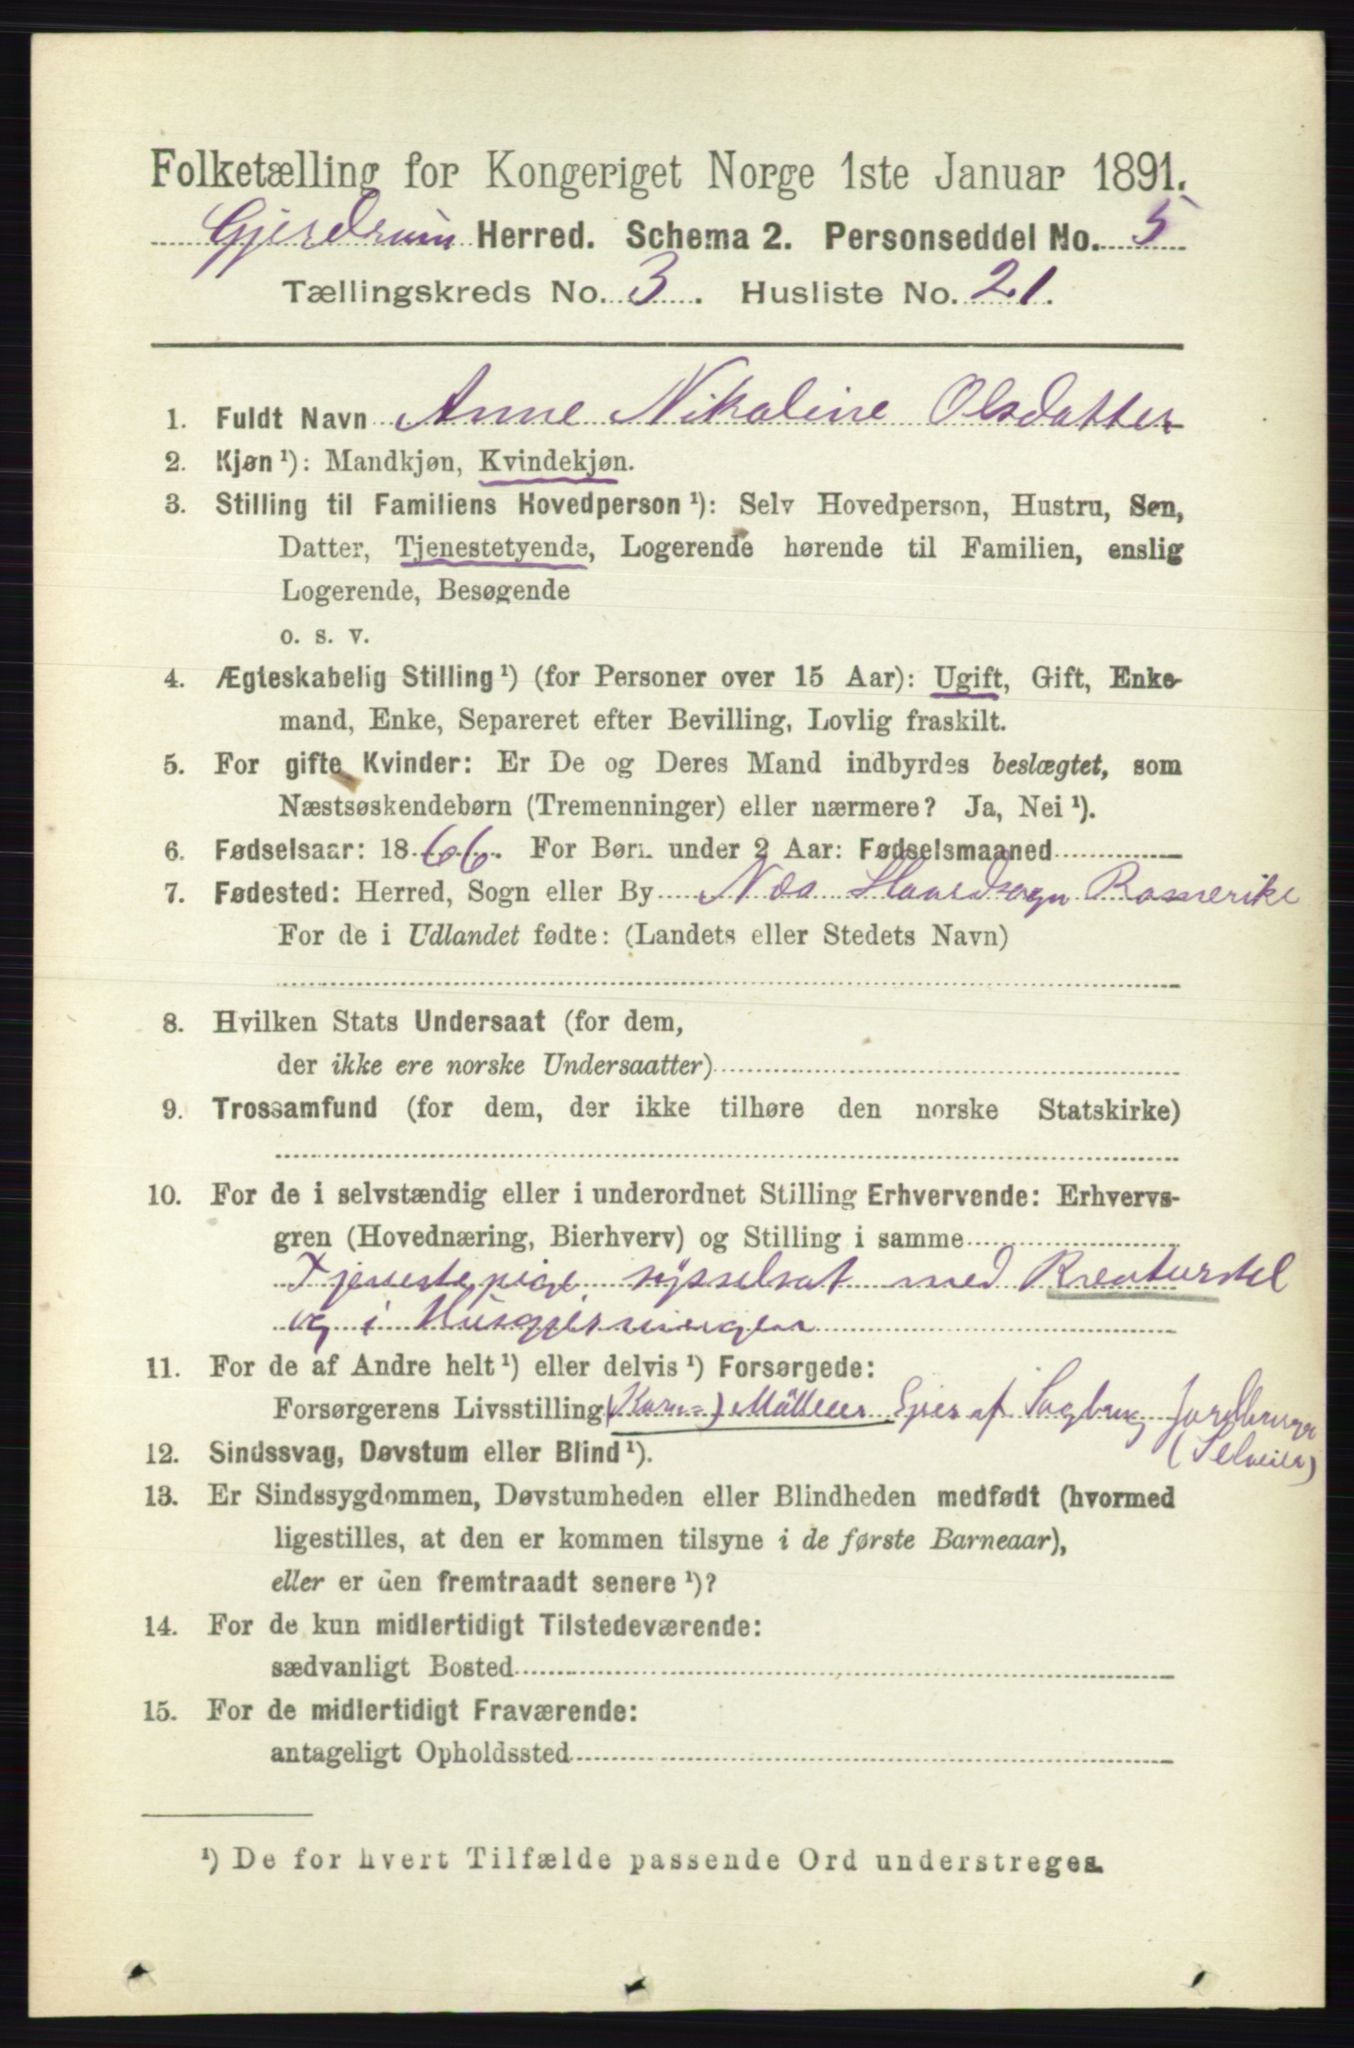 Folketælling for Kongeriget Norge 1ste Januar 1891.
Gjerdrum Herred. Schema 2. Personseddel No. 5
Tællingskreds No. 3. Husliste No. 21.
1. Fuldt Navn Anne Nikoline Olsdatter
2. Kjøn ¹): Mandkjøn, Kvindekjøn.
3. Stilling til Familiens Hovedperson ¹): Selv Hovedperson, Hustru, Søn,
Datter, Tjenestetyende, Logerende hørende til Familien, enslig
Logerende, Besøgende
o. s. v.
4. Ægteskabelig Stilling ¹) (for Personer over 15 Aar): Ugift, Gift, Enke-
mand, Enke, Separeret efter Bevilling, Lovlig fraskilt.
5. For gifte Kvinder: Er De og Deres Mand indbyrdes beslægtet, som
Næstsøskendebørn (Tremenninger) eller nærmere? Ja, Nei ¹).
6. Fødselsaar: 1866. For Børn under 2 Aar: Fødselsmaaned
7. Fødested: Herred, Sogn eller By Næs Romerike
For de i Udlandet fødte: (Landets eller Stedets Navn)
8. Hvilken Stats Undersaat (for dem,
der ikke ere norske Undersaatter)
9. Trossamfund (for dem, der ikke tilhøre den norske Statskirke)
10. For de i selvstændig eller i underordnet Stilling Erhvervende: Erhvervs-
gren (Hovednæring, Bierhverv) og Stilling i samme
Tjenestepige sysselsat med Kreaturstel
og i Husgjerningen
11. For de af Andre helt ¹) eller delvis ¹) Forsørgede:
Forsørgerens Livsstilling (Korn=) Møller Eier af Sagbrug Jordbruger
(Selveier)
12. Sindssvag, Døvstum eller Blind ¹).
13. Er Sindssygdommen, Døvstumheden eller Blindheden medfødt (hvormed
ligestilles, at den er kommen tilsyne i de første Barneaar),
eller er den fremtraadt senere ¹)?
14. For de kun midlertidigt Tilstedeværende:
sædvanligt Bosted
15. For de midlertidigt Fraværende:
antageligt Opholdssted
¹) De for hvert Tilfælde passende Ord understreges.